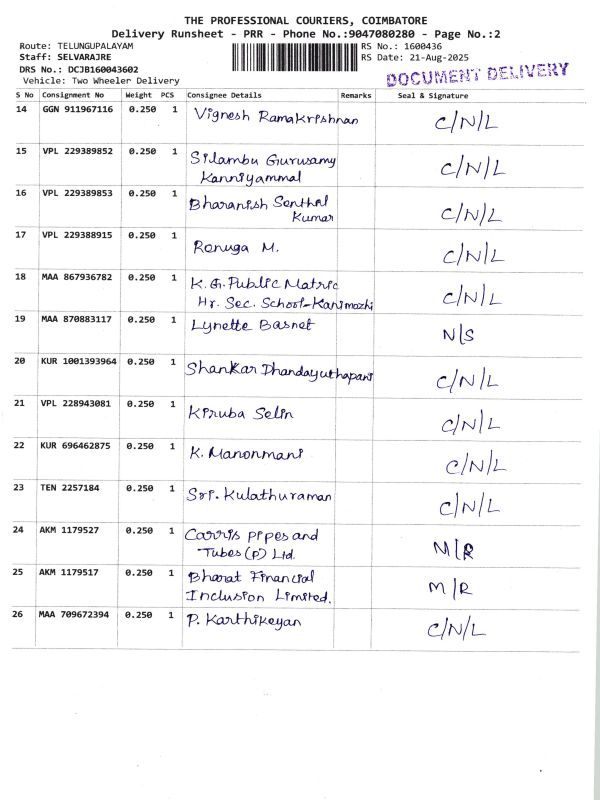 THE PROFESSIONAL COURIERS, COIMBATORE
Delivery Runsheet - PRR - Phone No.:9047080280 - Page No.:2
Route: TELUNGUPALAYAM RS No.: 1600436
Staff: SELVARAJRE RS Date: 21-Aug-2025
DRS No.: DCJB160043602
Vehicle: Two Wheeler Delivery
DOCUMENT DELIVERY
S No Consignment No Weight PCS Consignee Details Remarks Seal & Signature
14 GGN 911967116 0.250 1 Vignesh Ramakrishnan C/N/L
15 VPL 229389852 0.250 1 Silambu Gurusamy C/N/L
Kanniyammal
16 VPL 229389853 0.250 1 Bharanish Senthil C/N/L
Kumar
17 VPL 229388915 0.250 1 Renuga M. C/N/L
18 MAA 867936782 0.250 1 K.G. Public Matric C/N/L
Hr. Sec. School-Kanimozhi
19 MAA 870883117 0.250 1 Lynette Basnet N/S
20 KUR 1001393964 0.250 1 Shankar Dhandayuthapani C/N/L
21 VPL 228943081 0.250 1 Kiruba Selin C/N/L
22 KUR 696462875 0.250 1 K. Manonmani C/N/L
23 TEN 2257184 0.250 1 Sri. Kulathuraman C/N/L
24 AKM 1179527 0.250 1 Carris pipes and M/R
Tubes (P) Ltd.
25 AKM 1179517 0.250 1 Bharat Financial M/R
Inclusion Limited.
26 MAA 709672394 0.250 1 P. Karthikeyan C/N/L